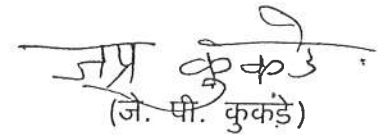 जप्र कुकडे
(जे. पी. कुकंड़े)